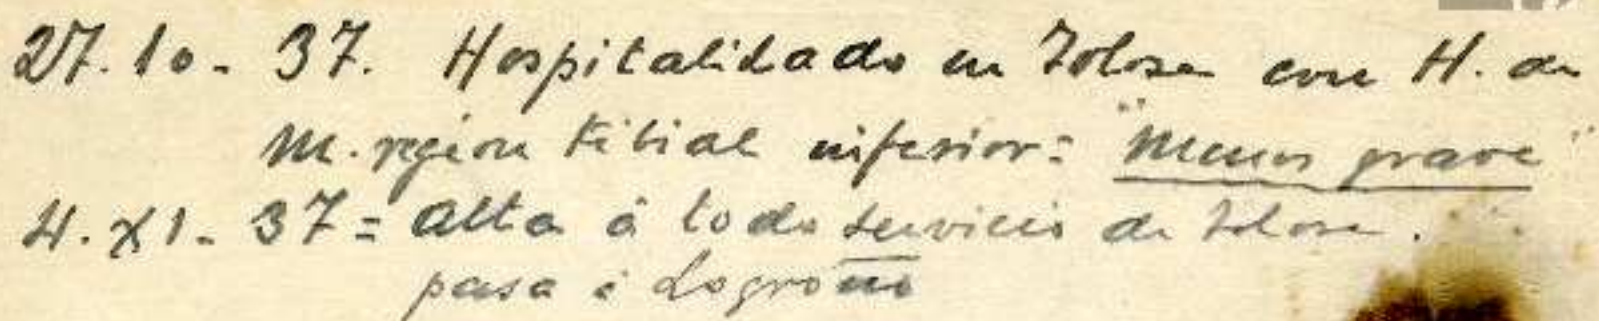 27.10.- 37. Hospitalidado en Tolosa con H. de
M. region tibial inferior: "Menos grave"
4.XI.- 37 = alta á todo servicio de Tolosa.
pasa á Logroño